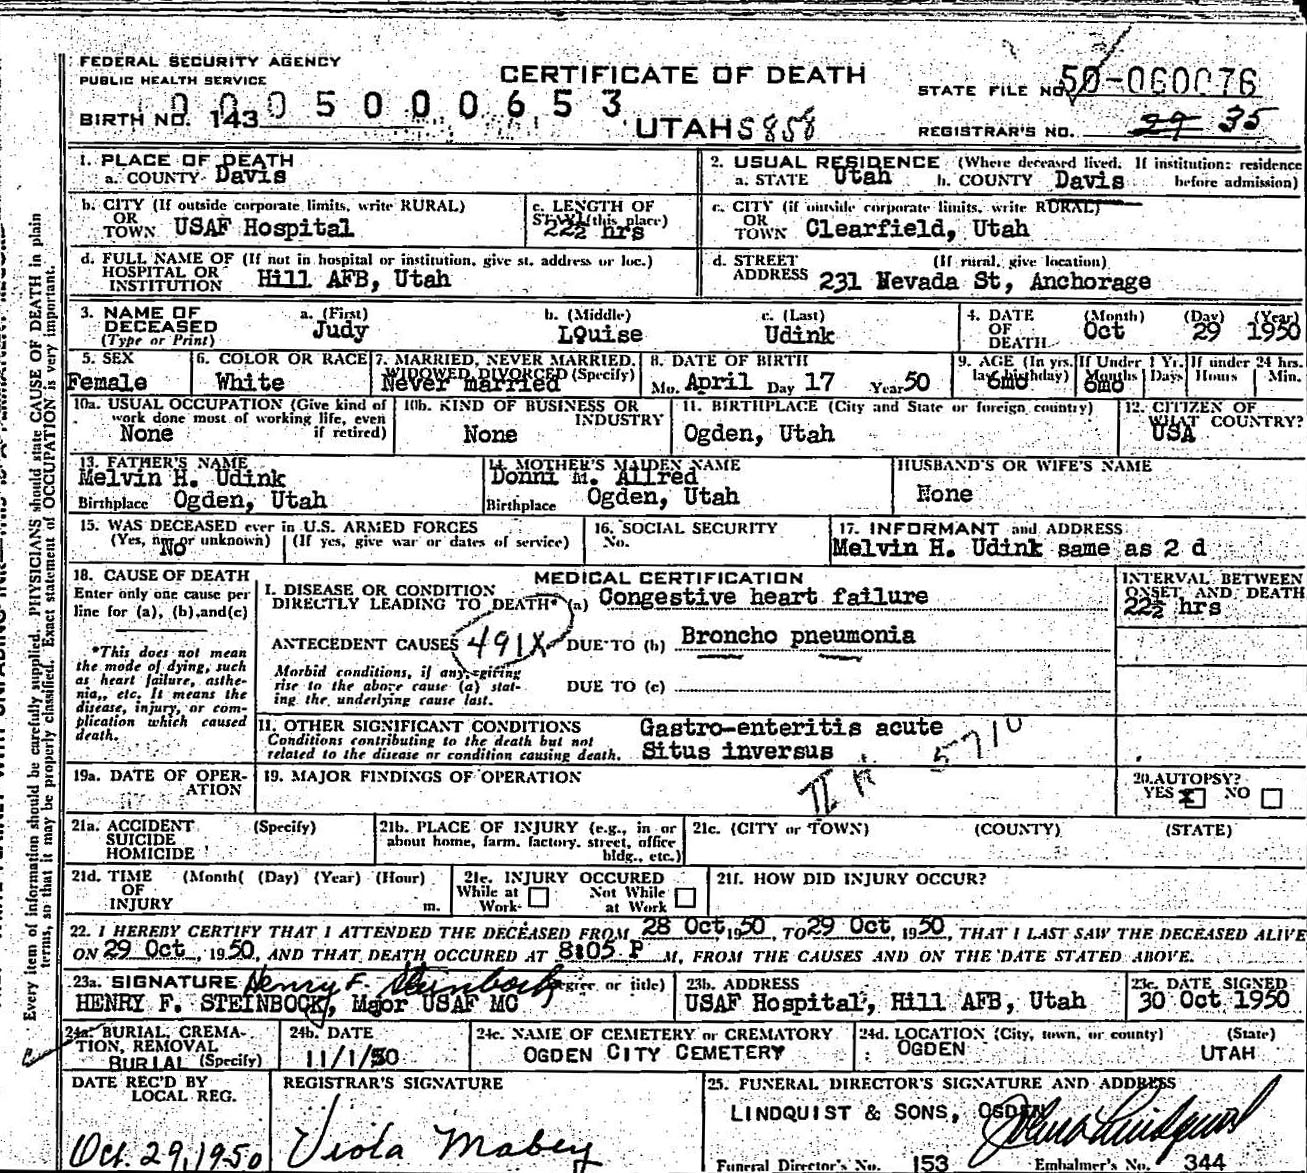 FEDERAL SECURITY AGENCY
PUBLIC HEALTH SERVICE
CERTIFICATE OF DEATH
STATE FILE NO. 50-060076
0005000653
BIRTH NO. 143
UTAH S858
REGISTRAR'S NO. 29 35
1. PLACE OF DEATH
a. COUNTY Davis
2. USUAL RESIDENCE (Where deceased lived. If institution: residence
a. STATE Utah b. COUNTY Davis before admission)
b. CITY (If outside corporate limits, write RURAL)
OR
TOWN USAF Hospital
c. LENGTH OF
STAY (this place)
22½ hrs
c. CITY (if outside corporate limits, write RURAL)
OR
TOWN Clearfield, Utah
d. FULL NAME OF (If not in hospital or institution, give st. address or loc.)
HOSPITAL OR
INSTITUTION Hill AFB, Utah
d. STREET (If rural, give location)
ADDRESS 231 Nevada St, Anchorage
3. NAME OF
DECEASED
(Type or Print)
a. (First)
Judy
b. (Middle)
Louise
c. (Last)
Udink
4. DATE
OF
DEATH
(Month) (Day) (Year)
Oct 29 1950
5. SEX
Female
6. COLOR OR RACE
White
7. MARRIED, NEVER MARRIED,
WIDOWED DIVORCED (Specify)
Never married
8. DATE OF BIRTH
Mo. April Day 17 Year 50
9. AGE (In yrs.
last birthday)
6mo
If Under 1 Yr.
Months Days
6mo
If under 24 hrs.
Hours Min.
10a. USUAL OCCUPATION (Give kind of
work done most of working life, even
if retired)
None
10b. KIND OF BUSINESS OR
INDUSTRY
None
11. BIRTHPLACE (City and State or foreign country)
Ogden, Utah
12. CITIZEN OF
WHAT COUNTRY?
USA
13. FATHER'S NAME
Melvin H. Udink
Birthplace Ogden, Utah
14. MOTHER'S MAIDEN NAME
Donni M. Allred
Birthplace Ogden, Utah
HUSBAND'S OR WIFE'S NAME
None
15. WAS DECEASED ever in U.S. ARMED FORCES
(Yes, no, or unknown) (If yes, give war or dates of service)
No
16. SOCIAL SECURITY
No.
17. INFORMANT and ADDRESS
Melvin H. Udink same as 2 d
18. CAUSE OF DEATH
Enter only one cause per
line for (a), (b), and (c)
*This does not mean
the mode of dying, such
as heart failure, asthe-
nia,, etc. It means the
disease, injury, or com-
plication which caused
death.
MEDICAL CERTIFICATION
I. DISEASE OR CONDITION
DIRECTLY LEADING TO DEATH* (a) Congestive heart failure
INTERVAL BETWEEN
ONSET AND DEATH
22½ hrs
ANTECEDENT CAUSES 491X DUE TO (b) Broncho pneumonia
Morbid conditions, if any, giving
rise to the above cause (a) stat-
ing the underlying cause last.
DUE TO (c)
11. OTHER SIGNIFICANT CONDITIONS
Conditions contributing to the death but not
related to the disease or condition causing death.
Gastro-enteritis acute
Situs inversus
5710
19a. DATE OF OPER-
ATION
19. MAJOR FINDINGS OF OPERATION
20. AUTOPSY?
YES X NO
21a. ACCIDENT (Specify)
SUICIDE
HOMICIDE
21b. PLACE OF INJURY (e.g., in or
about home, farm, factory, street, office
bldg., etc.)
21c. (CITY or TOWN) (COUNTY) (STATE)
21d. TIME (Month( (Day) (Year) (Hour)
OF
INJURY m.
21e. INJURY OCCURED
While at Work
Not While at Work
21f. HOW DID INJURY OCCUR?
22. I HEREBY CERTIFY THAT I ATTENDED THE DECEASED FROM 28 Oct, 1950, TO 29 Oct, 1950, THAT I LAST SAW THE DECEASED ALIVE
ON 29 Oct, 1950, AND THAT DEATH OCCURED AT 8:05 P M, FROM THE CAUSES AND ON THE DATE STATED ABOVE.
23a. SIGNATURE Henry F. Steinbock (Degree or title)
HENRY F. STEINBOCK, Major USAF MC
23b. ADDRESS
USAF Hospital, Hill AFB, Utah
23c. DATE SIGNED
30 Oct 1950
24a. BURIAL, CREMA-
TION, REMOVAL
BURIAL (Specify)
24b. DATE
11/1/50
24c. NAME OF CEMETERY or CREMATORY
OGDEN CITY CEMETERY
24d. LOCATION (City, town, or county) (State)
OGDEN UTAH
DATE REC'D BY
LOCAL REG.
Oct. 29, 1950
REGISTRAR'S SIGNATURE
Viola Mabey
25. FUNERAL DIRECTOR'S SIGNATURE AND ADDRESS
LINDQUIST & SONS, OGDEN
John Lindquist
Funeral Director's No. 153 Embalmer's No. 344
Every item of information should be carefully supplied. PHYSICIANS should state CAUSE OF DEATH in plain
terms, so that it may be properly classified. Exact statement of OCCUPATION is very important.